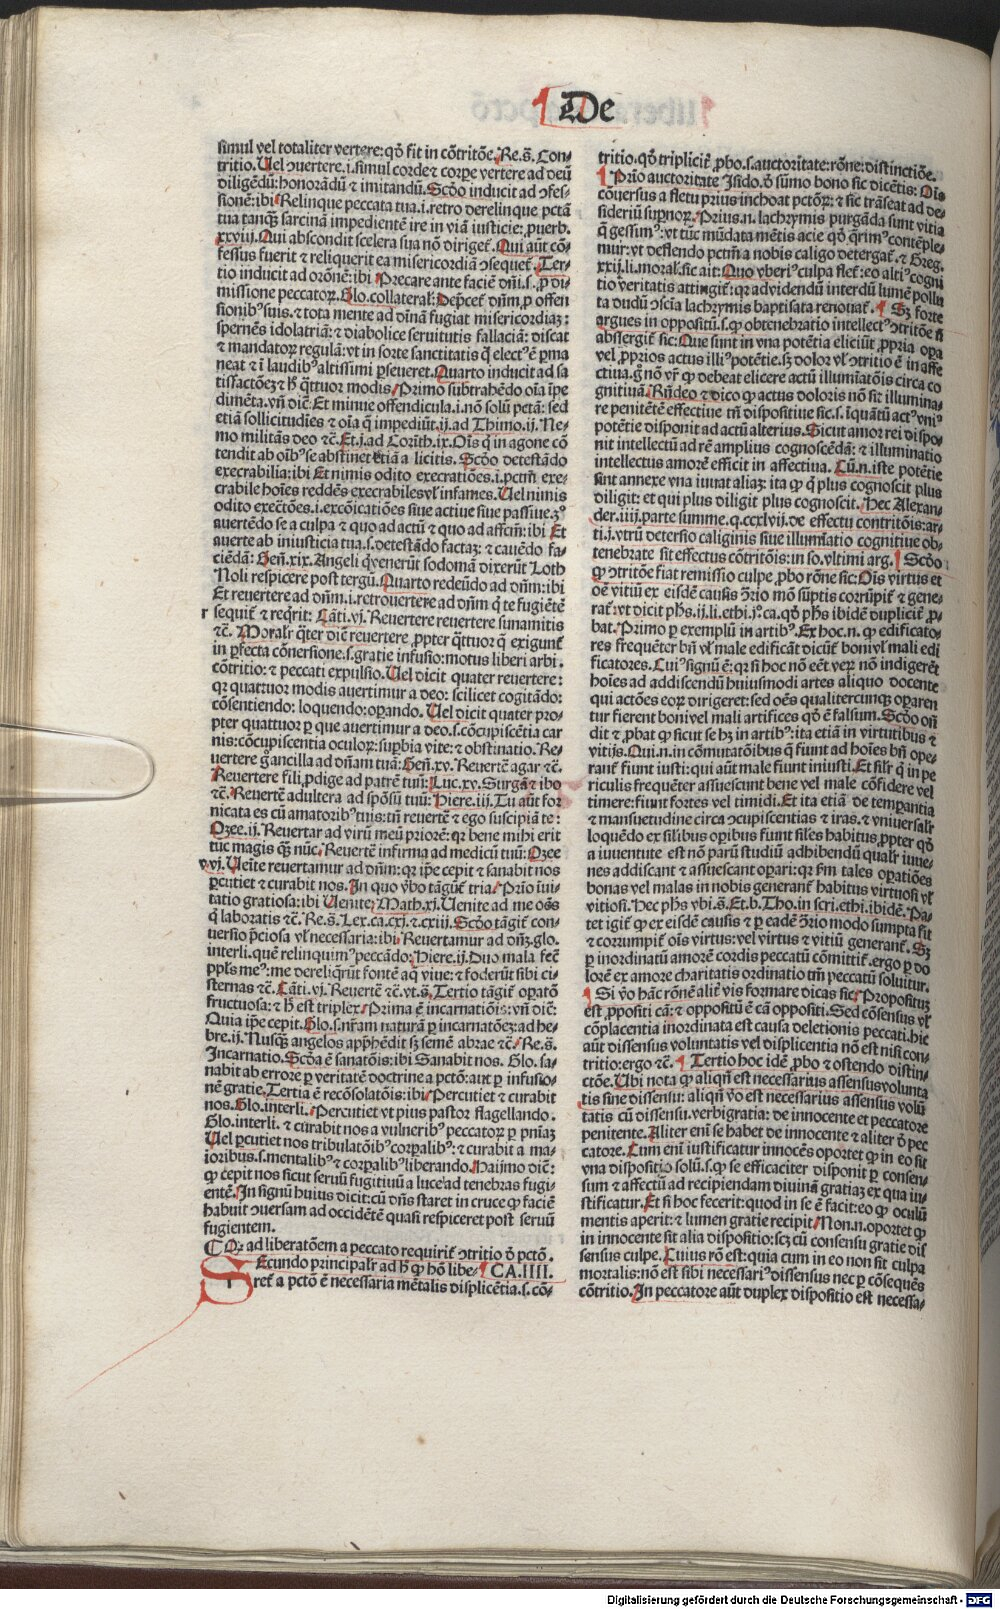 De
simul vel totaliter vertere: qđ fit in cõtritõe. Re. s̃. Con-
tritio. Uel ↄvertere .i. simul corde ⁊ corpe vertere ad deũ
diligẽdũ: honorãdũ ⁊ imitandũ. Scđo inducit ad ↄfes-
sionẽ: ibi Relinque peccata tua .i. retro derelinque pctã
tua tanqꝫ sarcinã impedientẽ ire in viã iusticie: ꝓuerb.
xxviij. Qui abscondit scelera sua nõ diriget̃. Qui aũt cõ-
fessus fuerit ⁊ reliquerit ea misericordiã ↄsequet̃. Ter-
tio inducit ad orõnẽ: ibi Precare ante faciẽ dñi .s. ꝓ di-
missione peccatoꝝ. Glo. collateral̃: Dep̃cet̃ dñm ꝑ offen
sionibꝰ suis. ⁊ tota mente ad diĩnã fugiat misericordiaꝫ:
spernẽs idolatriã: ⁊ diabolice seruitutis fallaciã: discat
⁊ mandatoꝝ regulã: vt in sorte sanctitatis q̃ electꝰ ẽ ꝑma
neat ⁊ ĩ laudibꝰ altissimi ꝑseueret. Quarto inducit ad sa
tisfactõeꝫ ⁊ h̃ q̃ttuor modis. Primo subtrahẽdo oĩa ĩpe
dimẽta. vñ dic̃: Et minue offendicula .i. nõ solũ pctã: sed
etiã sollicitudĩes ⁊ oĩa q̃ impediũt. ij. ad Thimo. ij. Ne-
mo militãs deo ⁊c̃. Et .j. ad Corĩth. ix. Oĩs q̃ in agone cõ
tendit ab oĩbꝰ se abstinet etiã a licitis. Scđo detestãdo
execrabilia: ibi Et nimis odito execratiões .i. pctm̃ exe-
crabile hoĩes reddẽs execrabiles vł infames. Uel nimis
odito execr̃ões .i. excõicatiões siue actiue siue passiue. 3ꝰ
auertẽdo se a culpa ⁊ quo ad actũ ⁊ quo ad affcm̃: ibi Et
auerte ab iniusticia tua .s. detestãdo factaꝫ: ⁊ cauẽdo fa-
ciẽdã: Geñ. xix. Angeli q̃ venerũt sodomã dixerũt Loth
Noli respicere post tergũ. Quarto redeũdo ad dñm: ibi
Et reuertere ad dñm .i. retrouertere ad dñm q̃ te fugiẽtẽ
r sequit̃ ⁊ req̃rit: Cãti. vj. Reuertere reuertere sunamitis
⁊c̃. Moralr̃ q̃ter dic̃ reuertere ꝓpter q̃ttuor q̃ exigunt̃
in ꝑfecta cõuersione .s. gratie infusio: motus liberi arbi.
cõtritio: ⁊ peccati expulsio. Uel dicit quater reuertere:
qꝛ quattuor modis auertimur a deo: scilicet cogitãdo:
cõsentiendo: loquendo: oꝑando. Uel dicit quater pro-
pter quattuor ꝑ que auertimur a deo .s. cõcupiscẽtia car
nis: cõcupiscentia oculoꝝ: suꝑbia vite: ⁊ obstinatio. Re-
uertere g̃ ancilla ad dñam tuã: Geñ. xv. Reuertẽ agar ⁊c̃.
Reuertere fili ꝓdige ad patrẽ tuũ: Luc. xv. Surgã ⁊ ibo
⁊c̃. Reuertẽ adultera ad spõsũ tuũ: Hiere. iij. Tu aũt for
nicata es cũ amatoribꝰ tuis: tñ reuertẽ ⁊ ego suscipiã te:
Ozee. ij. Reuertar ad virũ meũ priorẽ: qꝛ bene mihi erit
tũc magis q̃ꝫ nũc. Reuertẽ infirma ad medicũ tuũ: Ozee
v. vj. Ueĩte reuertamur ad dñm: qꝛ ip̃e cepit ⁊ sanabit nos
ꝑcutiet ⁊ curabit nos. In quo ṽbo tãgũt̃ tria. Prĩo ĩui-
tatio gratiosa: ibi Uenite: Math. xj. Uenite ad me oẽs
q̃ laboratis ⁊c̃. Re. s̃. Lex. ca. cxj. ⁊ cxiij. Scđo tãgit̃ con-
uersio p̃ciosa vł necessaria: ibi Reuertamur ad dñꝫ. glo.
interli. quẽ relinquimꝰ peccãdo: Hiere. ij. Duo mala fec̃
ppl̃s meꝰ: me dereliq̃rũt fontẽ aq̃ viue: ⁊ foderũt sibi ci-
sternas ⁊c̃. Cãti. vj. Reuertẽ ⁊c̃. vt. s̃. Tertio tãgit̃ oꝑatõ
fructuosa: ⁊ h̃ est triplex. Prima ẽ incarnatiõis: vñ dic̃:
Quia ip̃e cepit. Glo. s. nr̃am naturã ꝑ incarnatõeꝫ: ad he-
bre. ij. Nusq̃ꝫ angelos app̃hẽdit sꝫ semẽ abrae ⁊c̃. Re. s̃.
Incarnatio. Scđa ẽ sanatõis: ibi Sanabit nos. Glo. sa-
nabit ab errore ꝑ veritatẽ doctrine a pctõ: aut ꝑ infusio-
nẽ gratie. Tertia ẽ recõsolatõis: ibi Percutiet ⁊ curabit
nos. Glo. interli. Percutiet vt pius pastor flagellando.
Glo. interli. ⁊ curabit nos a vulneribꝰ peccatoꝝ ꝑ pniaꝫ
Uel ꝑcutiet nos tribulatõibꝰ corꝑalibꝰ: ⁊ curabit a ma-
ioribus .s. mentalibꝰ ⁊ corꝑalibꝰ liberando. Haĩmo dic̃:
ꝙ cepit nos sicut seruũ fugitiuũ a luce ad tenebras fugi-
entẽ. In signũ huius dicit: cũ dñs staret in cruce ꝙ faciẽ
habuit ↄuersam ad occidẽtẽ quasi respiceret post seruũ
fugientem.
¶ Qꝙ ad liberatõem a peccato requirit̃ ↄtritio õ pctõ.
Secundo principalr̃ ad h̃ ꝙ hõ libe- ¶ CA. IIII.
ret̃ a pctõ ẽ necessaria mẽtalis displicẽtia .s. cõ-
tritio. qđ triplicit̃ ꝓbo .s. auctoritate: rõne: distinctiõe.
¶ Prĩo auctoritate Isido. õ sũmo bono sic dicẽtis: Oĩs
cõuersus a fletu prius inchoat pctõꝝ: ⁊ sic trãseat ad de-
sideriũ suꝑnoꝝ. Prius .n. lachrymis purgãda sunt vitia
q̃ gessimꝰ: vt tũc mũdata mẽtis acie qđ q̃rimꝰ contẽple-
mur: vt deflendo pctm̃ a nobis caligo detergat̃. ⁊ Greg.
xxij. li. moral̃. sic ait: Quo vberiꝰ culpa flet̃: eo altiꝰ cogni
tio veritatis attingit̃: qꝛ ad videndũ interdũ lumẽ pollu
ta dudũ ↄscĩa lachrymis baptisata renouat̃. ¶ Sꝫ forte
argues in oppositũ .s. ꝙ obtenebratio intellectꝰ ↄtritõe ñ
abstergit̃ sic: Que sunt in vna potẽtia eliciũt ꝓpria oꝑa
vel ꝓprios actus illiꝰ potẽtie. sꝫ dolor vł ↄtritio ẽ in affe
ctiua. g̃ nõ vr̃ ꝙ debeat elicere actũ illumĩatõis circa co
gnitiuã. Rñdeo ⁊ dico ꝙ actus doloris nõ sic illumina-
re penitẽtẽ effectiue tñ dispositiue sic .s. ĩquãtũ actꝰ vniꝰ
potẽtie disponit ad actũ alterius. Sicut amor rei dispo-
nit intellectũ ad rẽ amplius cognoscẽdã: ⁊ illuminatio
intellectus amorẽ efficit in affectiua. Cũ .n. iste potẽtie
sint annexe vna iuuat aliaꝫ: ita ꝙ q̃ plus cognoscit plus
diligit: et qui plus diligit plus cognoscit. Hec Alexan-
der. iiij. parte summe. q. ccxlvij. de effectu contritõis: ar-
ti. i. vtrũ detersio caliginis siue illumĩatio cognitiue ob-
tenebrate sit effectus cõtritõis: in so. vltimi arg. ¶ Scđo
ꝙ ↄtritõe fiat remissio culpe ꝓbo rõne sic: Oĩs virtus et
oẽ vitiũ ex eisdẽ causis ↄ̃rio mõ sũptis corrũpit̃ ⁊ gene-
rat̃: vt dicit ph̃s. ij. li. ethi. jꝰ. ca. qđ ph̃s ibidẽ duplicit̃ ꝓ-
bat. Primo ꝑ exemplũ in artibꝰ. Ex hoc .n. ꝙ edificato-
res frequẽter bñ vł male edificãt dicũt̃ boni vł mali edi
ficatores. Cuiꝰ signũ ẽ: qꝛ si hoc nõ eẽt veꝝ nõ indigerẽt
hoĩes ad addiscendũ huiusmodi artes aliquo docente
qui actões eoꝝ dirigeret: sed oẽs qualitercunqꝫ oꝑaren
tur fierent boni vel mali artifices qđ ẽ falsum. Scđo oñ
dit ⁊ ꝓbat ꝙ sicut se hꝫ in artibꝰ: ita etiã in virtutibus ⁊
vitijs. Qui .n. in cõmutatõibus q̃ fiunt ad hoĩes bñ ope-
rant̃ fiunt iusti: qui aũt male fiunt iniusti. Et sil̃r q̃ in pe
riculis frequẽter assuescunt bene vel male cõfidere vel
timere: fiunt fortes vel timidi. Et ita etiã de tempantia
⁊ mansuetudine circa ↄcupiscentias ⁊ iras. ⁊ vniuersal̃r
loquẽdo ex silibus oꝑibus fiunt siles habitus. ꝓpter qđ
a iuuentute est nõ parũ studiũ adhibendũ qualr̃ iuue-
nes addiscant ⁊ assuescant oꝑari: qꝛ ẜm tales oꝑatiões
bonas vel malas in nobis generant̃ habitus virtuosi vł
vitiosi. Hec ph̃s vbi. s̃. Et. b. Tho. in scri. ethi. ibidẽ. Pa-
tet igit̃ ꝙ ex eisdẽ causis ⁊ ꝑ eadẽ ↄ̃rio modo sumpta fit
⁊ corrumpit̃ oĩs virtus: vel virtus ⁊ vitiũ generant̃. Sꝫ
ꝑ inordinatũ amorẽ cordis peccatũ cõmittit̃. ergo ꝑ do
lorẽ ex amore charitatis ordinatio tm̃ peccatũ soluitur.
¶ Si ṽo hãc rõnẽ alit̃ vis formare dicas sic. Propositũꝫ
est ꝓpositi cã: ⁊ oppositũ ẽ cã oppositi. Sed cõsensus vł
cõplacentia inordinata est causa deletionis peccati. hic
aũt dissensus voluntatis vel displicentia nõ est nisi con-
tritio: ergo ⁊c̃. ¶ Tertio hoc idẽ ꝓbo ⁊ ostendo distin-
ctõe. Ubi nota ꝙ aliqñ est necessarius assensus volunta
tis sine dissensu: aliqñ ṽo est necessarius assensus volũ
tatis cũ dissensu. verbigratia: de innocente et peccatore
penitente. Aliter enĩ se habet de innocente ⁊ aliter õ pec
catore. Cum enĩ iustificatur innocẽs oportet ꝙ in eo sit
vna dispositio solũ .s. ꝙ se efficaciter disponit ꝑ consen-
sum ⁊ affectũ ad recipiendam diuinã gratiaꝫ ex qua iu-
stificatur. Et si hoc fecerit: quod in se ẽ facit: eo ꝙ oculũ
mentis aperit: ⁊ lumen gratie recipit. Non .n. oportet ꝙ
in innocente sit alia dispositio: seꝫ cũ consensu gratie dis
sensus culpe. Cuius rõ est: quia cum in eo non sit culpa
mortalis: nõ est sibi necessariꝰ dissensus nec ꝑ cõsequẽs
cõtritio. In peccatore aũt duplex dispositio est necessa-
Digitalisierung gefördert durch die Deutsche Forschungsgemeinschaft - DFG